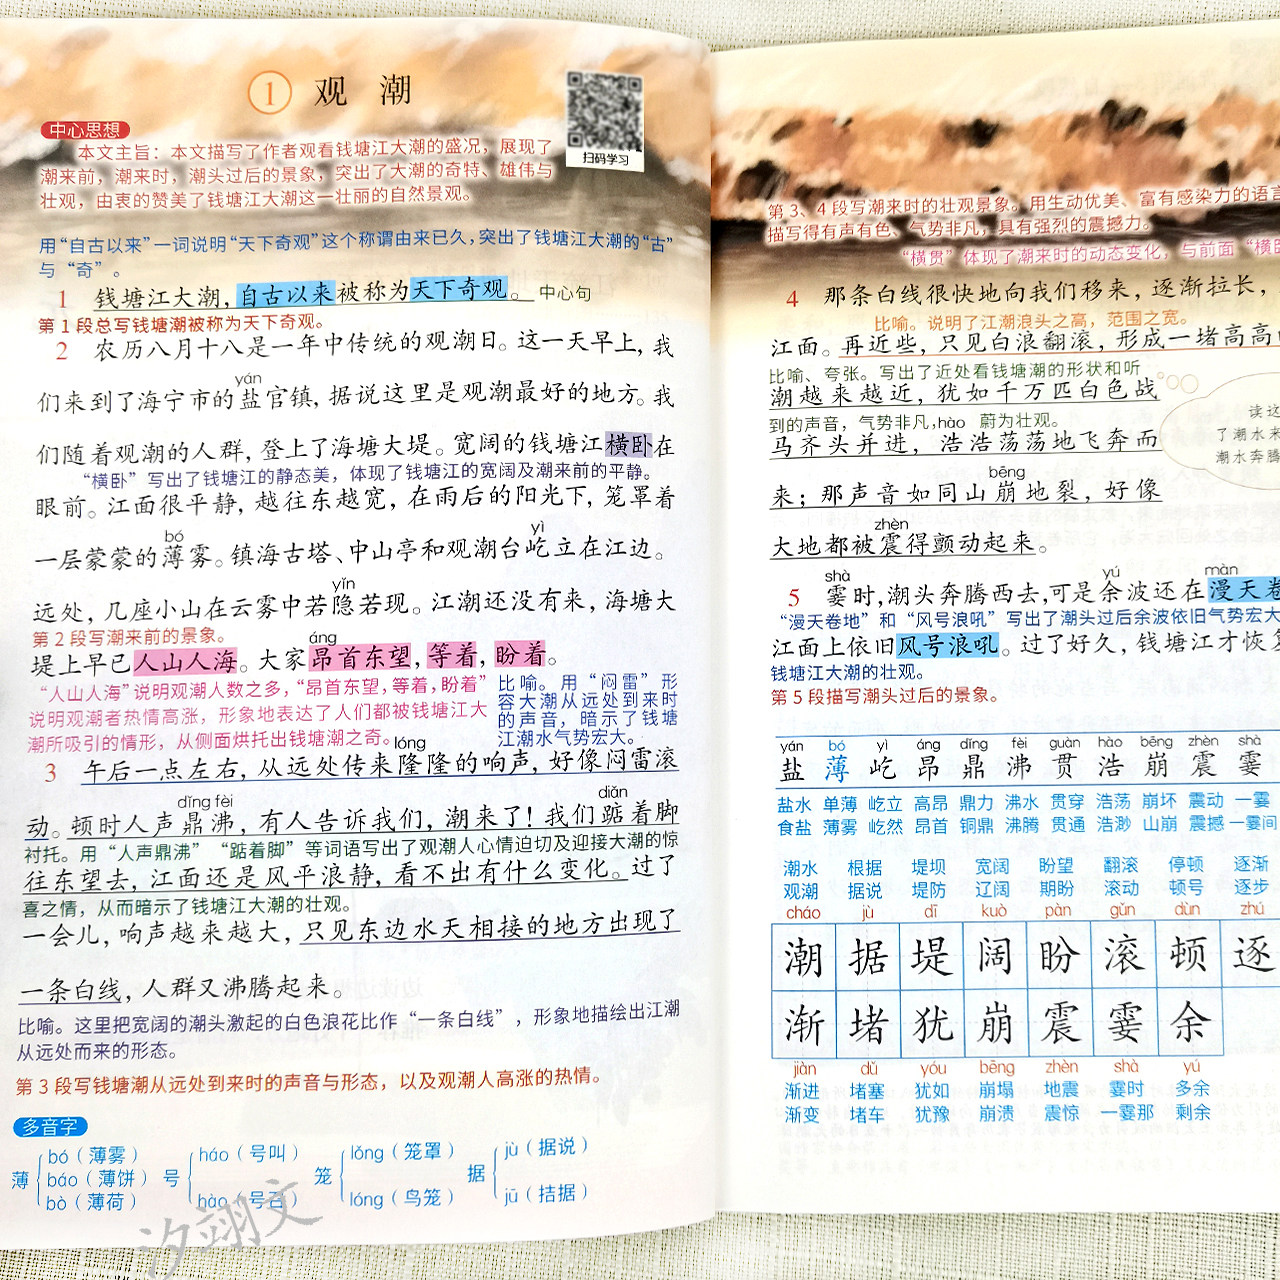 1 观 潮
扫码学习
中心思想
本文主旨：本文描写了作者观看钱塘江大潮的盛况，展现了
潮来前，潮来时，潮头过后的景象，突出了大潮的奇特、雄伟与
壮观，由衷的赞美了钱塘江大潮这一壮丽的自然景观。
用“自古以来”一词说明“天下奇观”这个称谓由来已久，突出了钱塘江大潮的“古”
与“奇”。
1 钱塘江大潮，自古以来被称为天下奇观。 中心句
第1段总写钱塘潮被称为天下奇观。
2 农历八月十八是一年中传统的观潮日。这一天早上，我
yán
们来到了海宁市的盐官镇，据说这里是观潮最好的地方。我
们随着观潮的人群，登上了海塘大堤。宽阔的钱塘江横卧在
“横卧”写出了钱塘江的静态美，体现了钱塘江的宽阔及潮来前的平静。
眼前。江面很平静，越往东越宽，在雨后的阳光下，笼罩着
bó yì
一层蒙蒙的薄雾。镇海古塔、中山亭和观潮台屹立在江边。
yǐn
远处，几座小山在云雾中若隐若现。江潮还没有来，海塘大
第2段写潮来前的景象。
áng
堤上早已人山人海。大家昂首东望，等着，盼着。
“人山人海”说明观潮人数之多，“昂首东望，等着，盼着”
说明观潮者热情高涨，形象地表达了人们都被钱塘江大
潮所吸引的情形，从侧面烘托出钱塘潮之奇。
比喻。用“闷雷”形
容大潮从远处到来时
的声音，暗示了钱塘
江潮水气势宏大。
lóng
3 午后一点左右，从远处传来隆隆的响声，好像闷雷滚
dǐng fèi diǎn
动。顿时人声鼎沸，有人告诉我们，潮来了！我们踮着脚
衬托。用“人声鼎沸”“踮着脚”等词语写出了观潮人心情迫切及迎接大潮的惊
往东望去，江面还是风平浪静，看不出有什么变化。过了
喜之情，从而暗示了钱塘江大潮的壮观。
一会儿，响声越来越大，只见东边水天相接的地方出现了
一条白线，人群又沸腾起来。
比喻。这里把宽阔的潮头激起的白色浪花比作“一条白线”，形象地描绘出江潮
从远处而来的形态。
第3段写钱塘潮从远处到来时的声音与形态，以及观潮人高涨的热情。
多音字
薄 bó（薄雾） báo（薄饼） bò（薄荷）
号 háo（号叫） hào（号召）
笼 lǒng（笼罩） lóng（鸟笼）
据 jù（据说） jū（拮据）
汐翊文
第3、4段写潮来时的壮观景象。用生动优美、富有感染力的语言
描写得有声有色、气势非凡，具有强烈的震撼力。
“横贯”体现了潮来时的动态变化，与前面“横卧
4 那条白线很快地向我们移来，逐渐拉长，
比喻。说明了江潮浪头之高，范围之宽。
江面。再近些，只见白浪翻滚，形成一堵高高
比喻、夸张。写出了近处看钱塘潮的形状和听
潮越来越近，犹如千万匹白色战
到的声音，气势非凡，蔚为壮观。
hào
马齐头并进，浩浩荡荡地飞奔而
bēng
来；那声音如同山崩地裂，好像
zhèn
大地都被震得颤动起来。
读这
了潮水来
潮水奔腾
shà yú màn
5 霎时，潮头奔腾西去，可是余波还在漫天卷
“漫天卷地”和“风号浪吼”写出了潮头过后余波依旧气势宏大
江面上依旧风号浪吼。过了好久，钱塘江才恢复
钱塘江大潮的壮观。
第5段描写潮头过后的景象。
yán bó yì áng dǐng fèi guàn hào bēng zhèn shà
盐 薄 屹 昂 鼎 沸 贯 浩 崩 震 霎
盐水 单薄 屹立 高昂 鼎力 沸水 贯穿 浩荡 崩坏 震动 一霎
食盐 薄雾 屹然 昂首 铜鼎 沸腾 贯通 浩渺 山崩 震撼 一霎间
潮水 根据 堤坝 宽阔 盼望 翻滚 停顿 逐渐
观潮 据说 堤防 辽阔 期盼 滚动 顿号 逐步
cháo jù dī kuò pàn gǔn dùn zhú
潮 据 堤 阔 盼 滚 顿 逐
渐 堵 犹 崩 震 霎 余
jiàn dǔ yóu bēng zhèn shà yú
渐进 堵塞 犹如 崩塌 地震 霎时 多余
渐变 堵车 犹豫 崩溃 震惊 一霎那 剩余